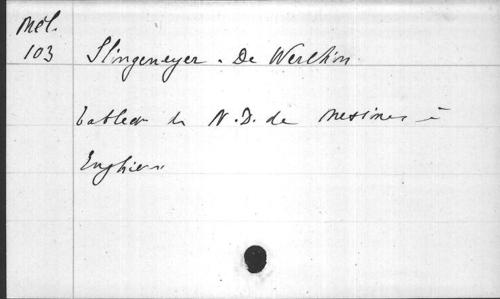 Mél.
103
Slingeneyer - De Werchin
tableau de N.D. de Messines à
Enghien